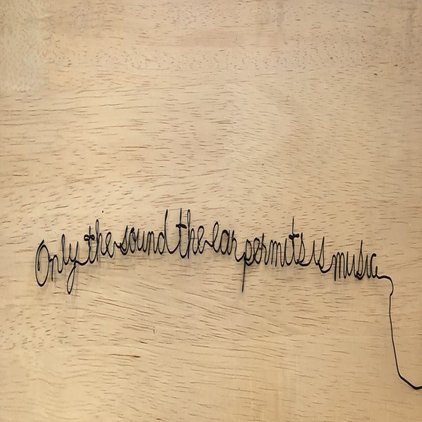 Only the sound the ear permits is music